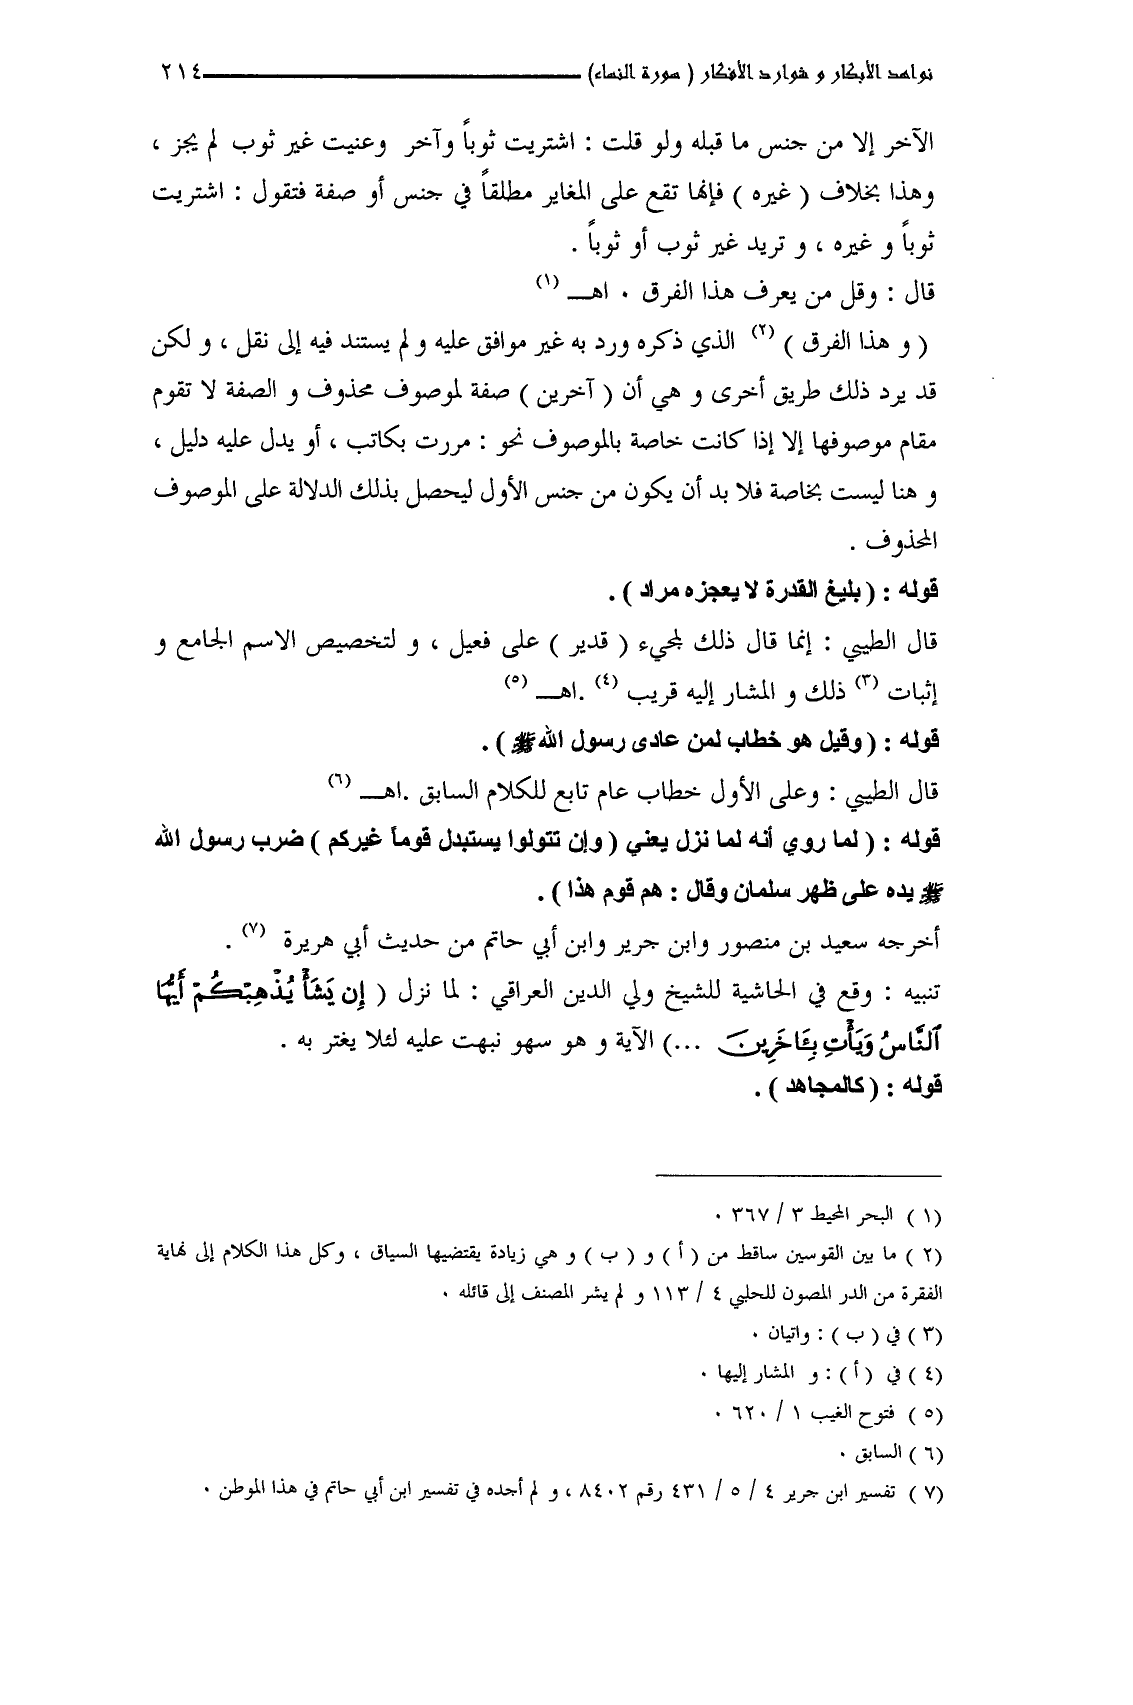 نواهد الأبكار و شوارد الأفكار ( سورة النساء) ٢١٤
الآخر إلا من جنس ما قبله ولو قلت : اشتريت ثوباً وآخر وعنيت غير ثوب لم يجز ،
وهذا بخلاف ( غيره ) فإنها تقع على المغاير مطلقاً في جنس أو صفة فتقول : اشتريت
ثوباً و غيره ، و تريد غير ثوب أو ثوباً .
قال : وقل من يعرف هذا الفرق ٠ اهـــ (١)
( و هذا الفرق ) (٢) الذي ذكره ورد به غير موافق عليه و لم يستند فيه إلى نقل ، و لكن
قد يرد ذلك طريق أخرى و هي أن ( آخرين ) صفة لموصوف محذوف و الصفة لا تقوم
مقام موصوفها إلا إذا كانت خاصة بالموصوف نحو : مررت بكاتب ، أو يدل عليه دليل ،
و هنا ليست بخاصة فلا بد أن يكون من جنس الأول ليحصل بذلك الدلالة على الموصوف
المحذوف .
قوله : ( بليغ القدرة لا يعجزه مراد ) .
قال الطيبي : إنما قال ذلك لمجيء ( قدير ) على فعيل ، و لتخصيص الاسم الجامع و
إثبات (٣) ذلك و المشار إليه قريب (٤) .اهـــ (٥)
قوله : ( وقيل هو خطاب لمن عادى رسول الله ﷺ ) .
قال الطيبي : وعلى الأول خطاب عام تابع للكلام السابق .اهـــ (٦)
قوله : ( لما روي أنه لما نزل يعني ( وإن تتولوا يستبدل قوماً غيركم ) ضرب رسول الله
ﷺ يده على ظهر سلمان وقال : هم قوم هذا ) .
أخرجه سعيد بن منصور وابن جرير وابن أبي حاتم من حديث أبي هريرة (٧) .
تنبيه : وقع في الحاشية للشيخ ولي الدين العراقي : لما نزل ( إِن يَشَأْ يُذْهِبْكُمْ أَيُّهَا
ٱلنَّاسُ وَيَأْتِ بِـَٔاخَرِينَ ...) الآية و هو سهو نبهت عليه لئلا يغتر به .
قوله : ( كالمجاهد ) .
(١ ) البحر المحيط ٣ / ٣٦٧ ٠
(٢ ) ما بين القوسين ساقط من ( أ ) و ( ب ) و هي زيادة يقتضيها السياق ، وكل هذا الكلام إلى نهاية
الفقرة من الدر المصون للحلبي ٤ / ١١٣ و لم يشر المصنف إلى قائله ٠
(٣ ) في ( ب ) : واتيان ٠
(٤ ) في ( أ ) : و المشار إليها ٠
(٥ ) فتوح الغيب ١ / ٦٢٠ ٠
(٦ ) السابق ٠
(٧ ) تفسير ابن جرير ٤ / ٥ / ٤٣١ رقم ٨٤٠٢ ، و لم أجده في تفسير ابن أبي حاتم في هذا الموطن ٠